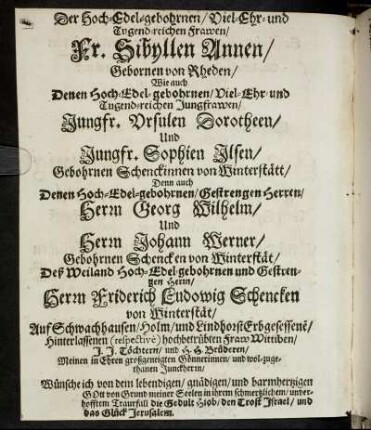 Der Hoch-Edel-gebohrnen/ Viel-Ehr- und
Tugend-reichen Frawen/
Fr. Sibyllen Annen/
Gebornen von Rheden/
Wie auch
Denen Hoch-Edel-gebohrnen/ Viel-Ehr-und
Tugend-reichen Jungfrawen/
Jungfr. Vrsulen Dorotheen/
Und
Jungfr. Sophien Ilsen/
Gebohrnen Schenckinnen von Winterstätt/
Denn auch
Denen Hoch-Edel-gebohrnen/ Gestrengen Herren/
Herrn Georg Wilhelm/
Und
Herrn Johann Werner/
Gebohrnen Schencken von Winterstät/
Deß Weiland Hoch-Edel-gebohrnen und Gestren-
gen Herrn/
Herrn Friderich Ludowig Schencken
von Winterstät/
Auf Schwachhausen/ Holm/ und Lindhorst Erbgesessenẽ/
Hinterlassenen (respectivè) hochbetrübten Fraw Wittiben/
J. J. Töchtern/ und H. H. Brüderen/
Meinen in Ehren großgeneigten Gönnerinnen/ und wol-zuge-
thanen Junckherrn/
Wünsche ich von dem lebendigen/ gnädigen/ und barmhertzigen
GOtt von Grund meiner Seelen in ihrem schmertzlichem/ unver-
hofftem Traurfall die Gedult Hiob/ den Trost Israel/ und
das Glück Jerusalem.